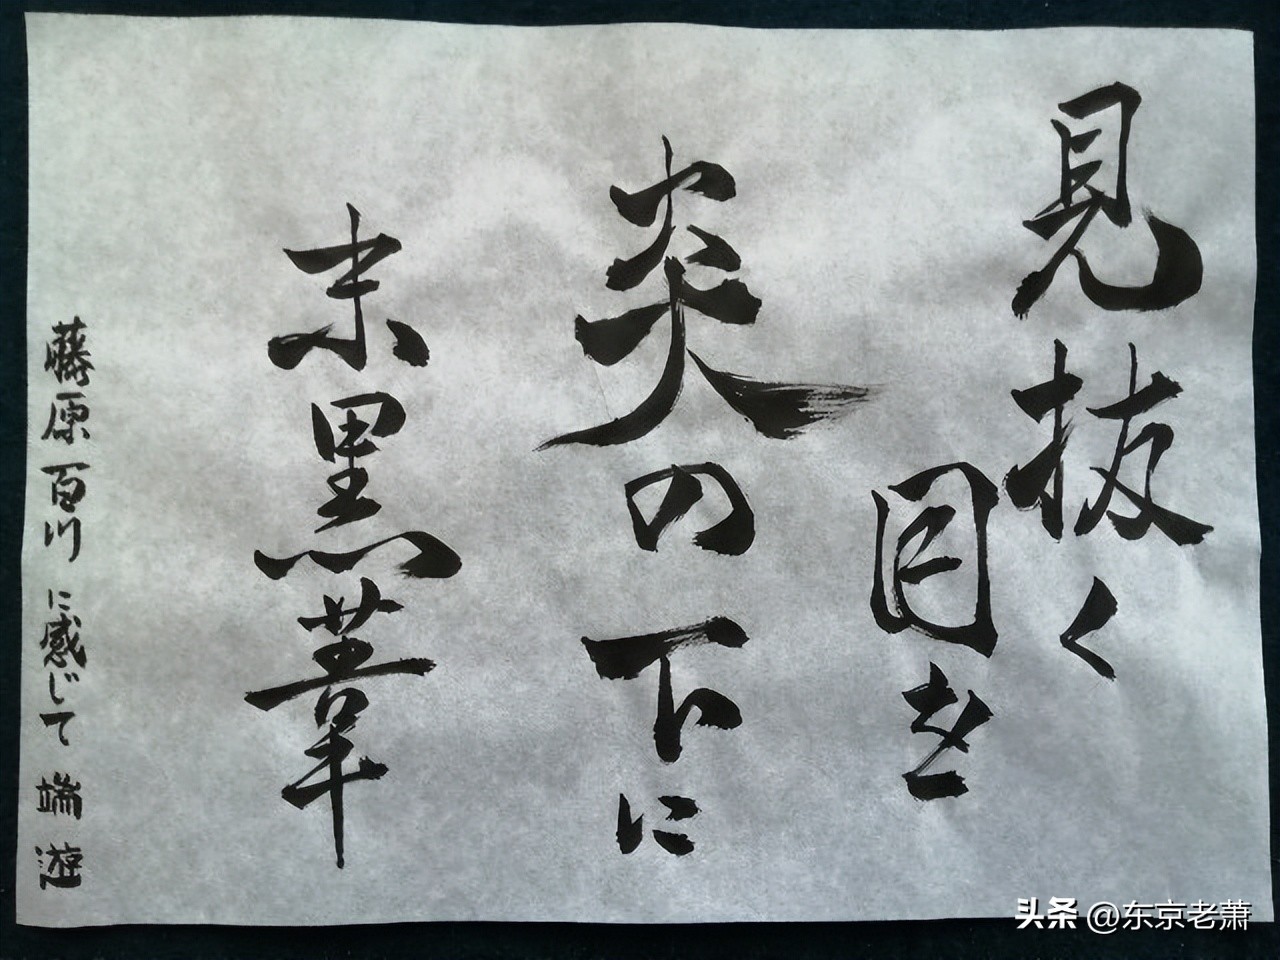 見抜く
目を
炎の下に
末黒葦
藤原百川に感じて 端遊
头条 @东京老萧